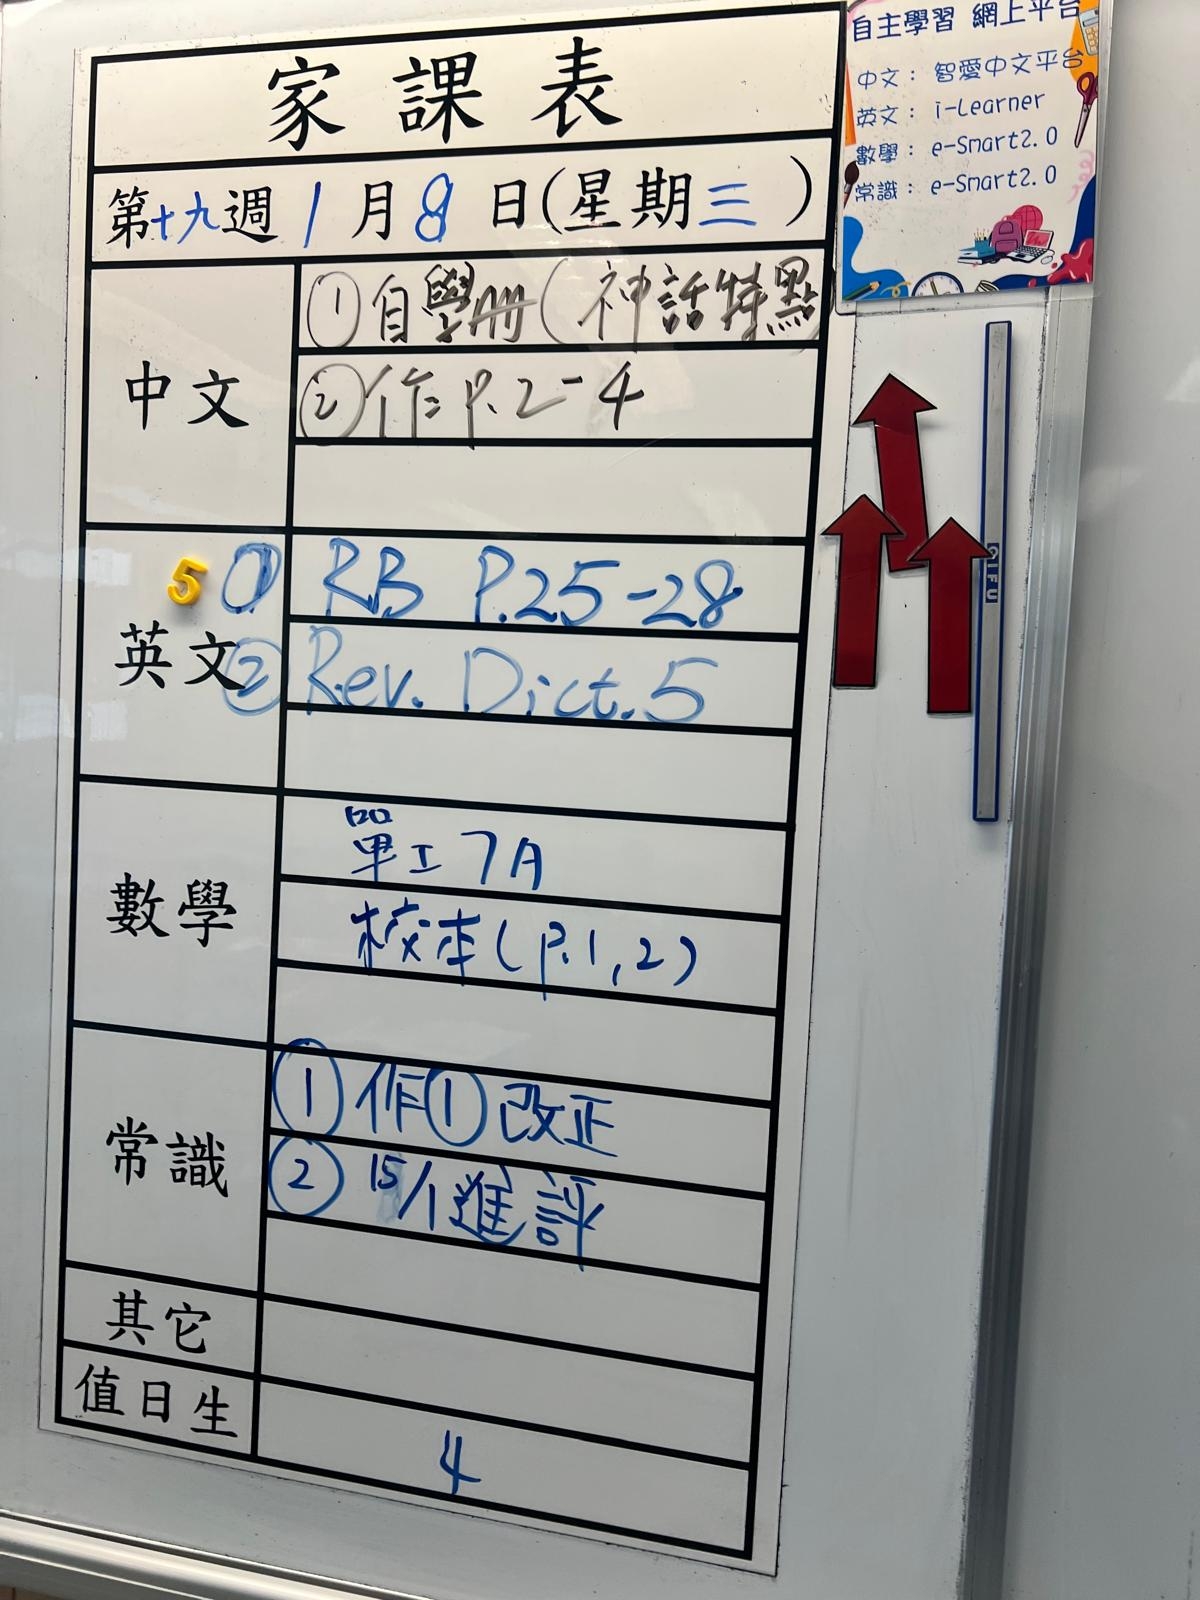 家課表
第十九週 1月8日(星期三)
中文
① 自學冊(神話特點
② 作二 P.2-4
英文
5
① RB P.25-28
② Rev. Dict.5
數學
單工 7A
校本(P.1,2)
常識
① 作① 改正
② 15/1 進評
其它
值日生
4
自主學習 網上平台
中文： 智愛中文平台
英文： i-Learner
數學： e-Smart2.0
常識： e-Smart2.0
QIFU